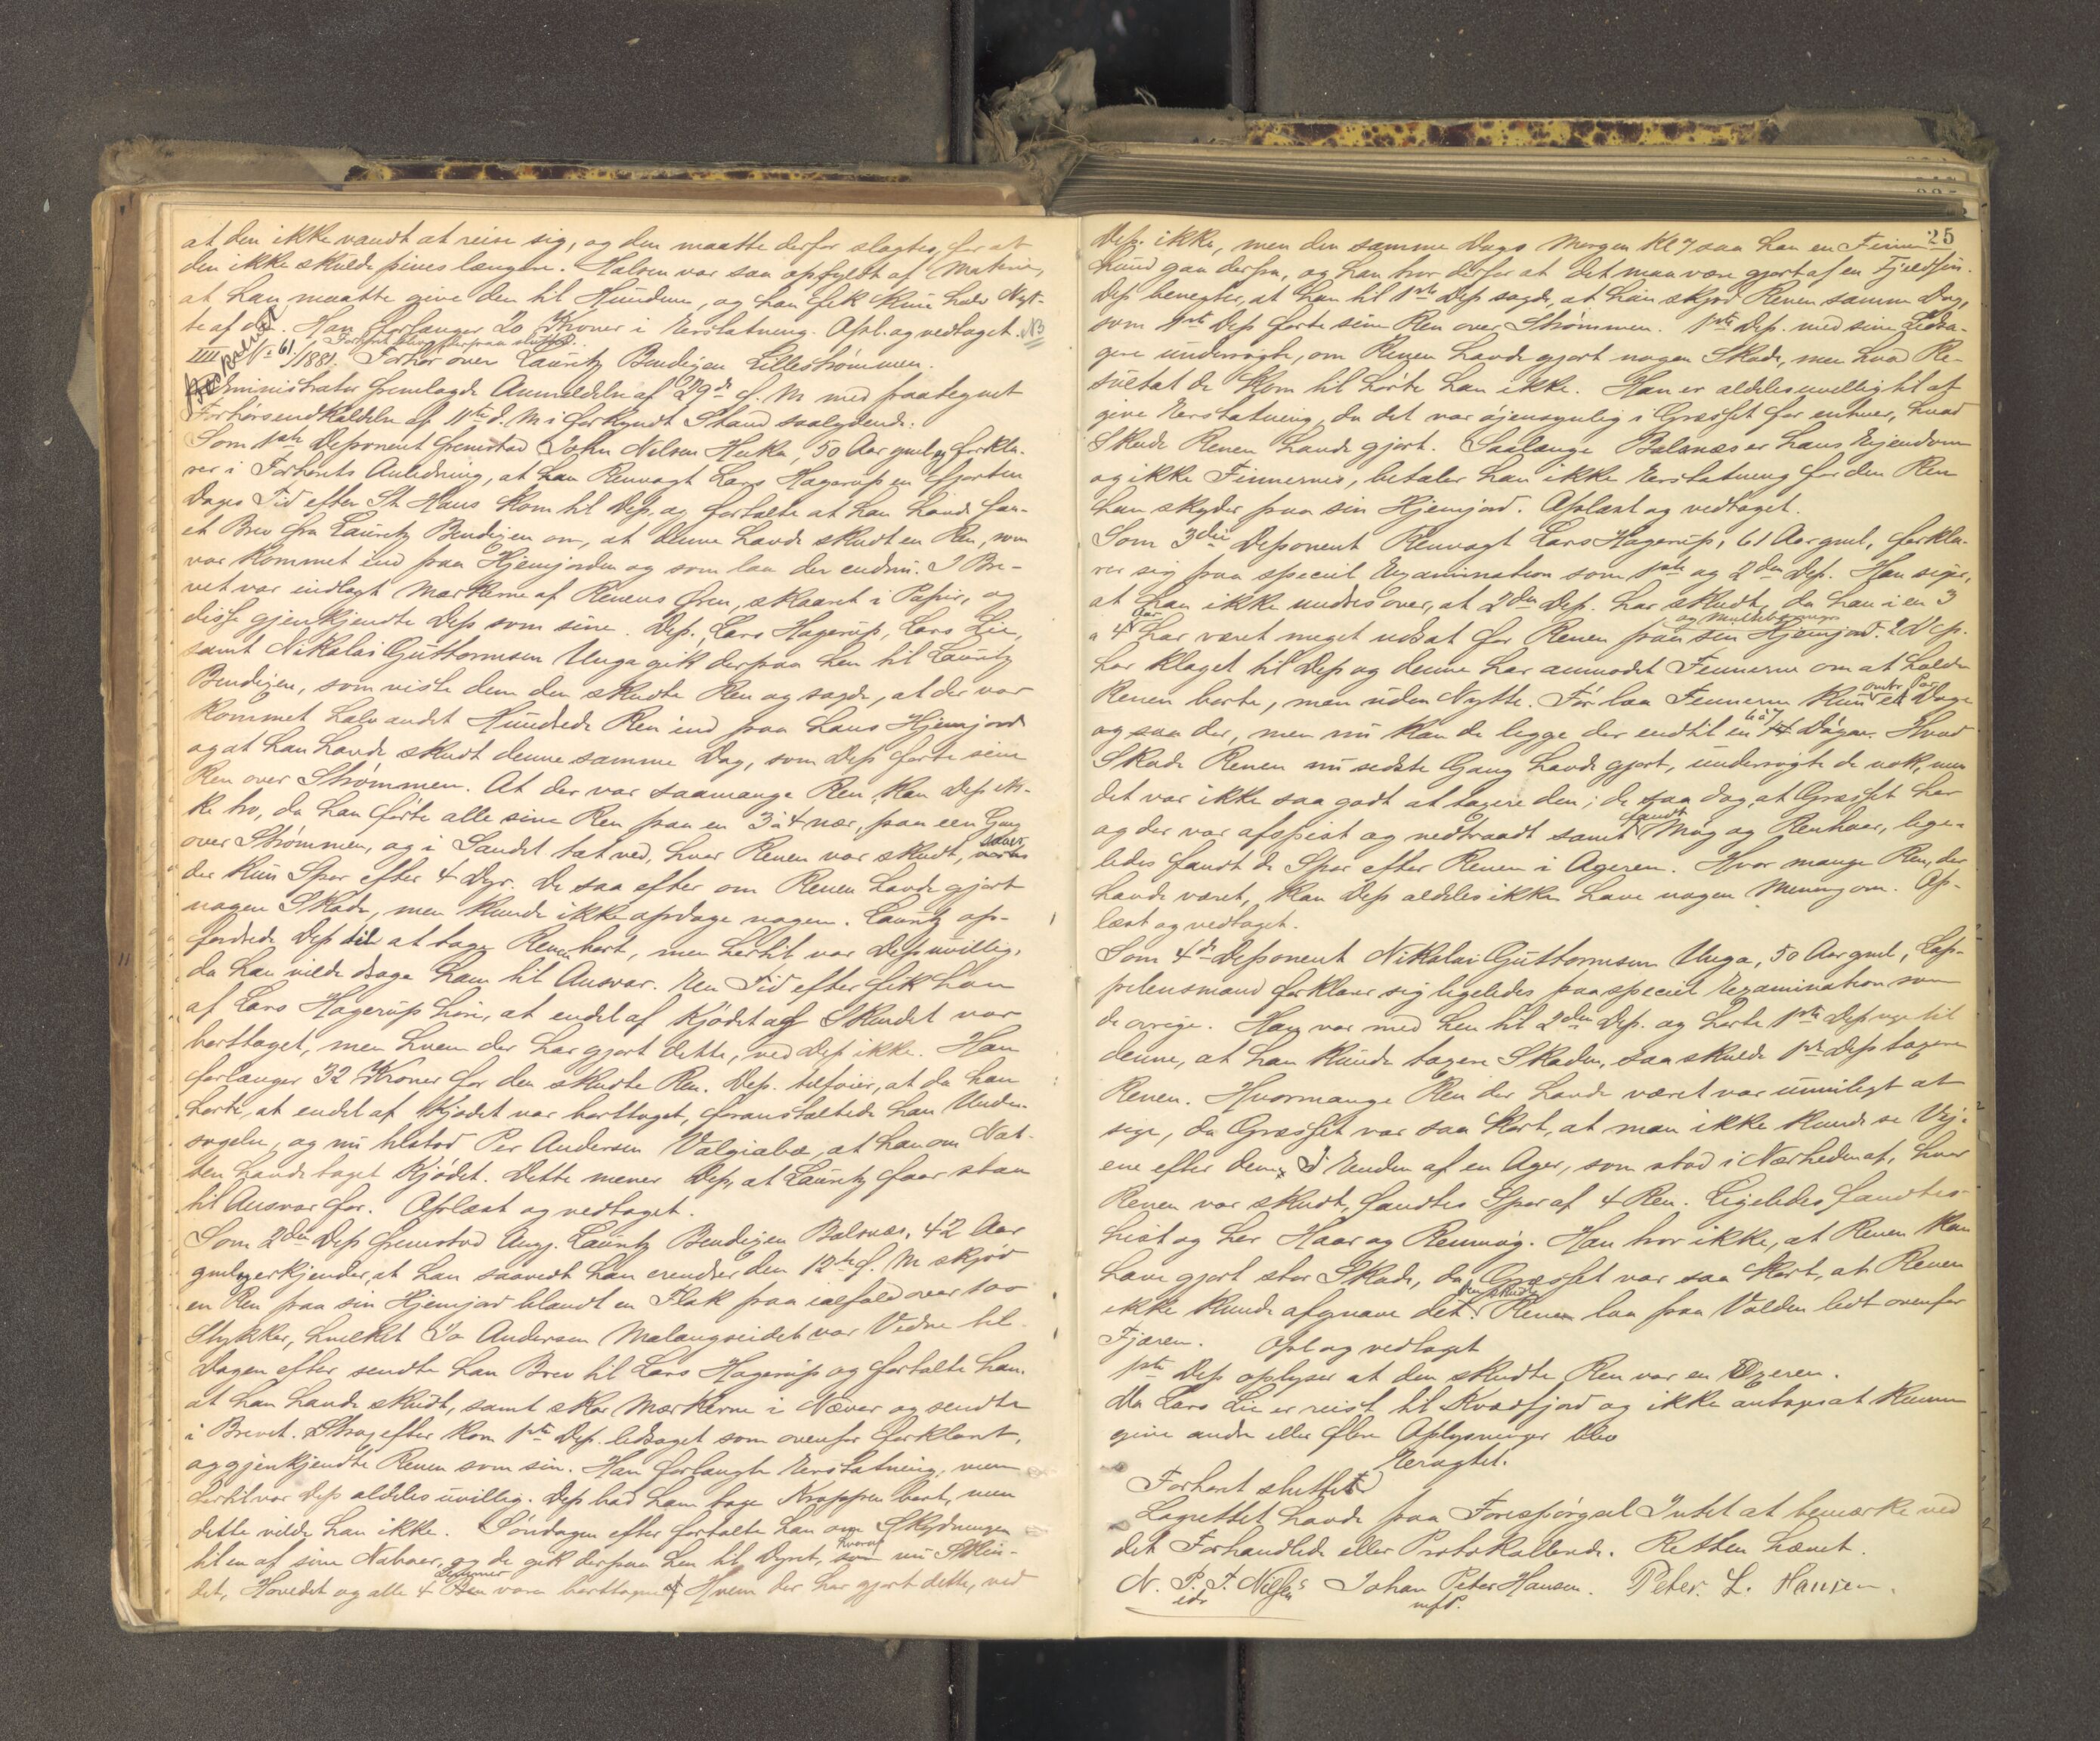 at den ikke vandt at reise sig, og den maatte derfor slagtes, for at
den ikke skulde pines længere. Halsen var saa opfyldt af Materie,
at han maatte give den til Hundene, og han fik kun halv Nyt-
te af den. Han forlanger 20 Kroner i Erstatning. Opl. og vedtaget. NB
Forhøret blev derpaa sluttet.
IIII No 61/1881. Forhør over Lauritz Bendigen Lillestrømmen.
Administrator fremlagde Anmeldelse af 29de f. M med paategnet
Forhørsendkaldelse af 11te d. M i forkyndt Stand saalydende:
Som 1ste Deponent fremstod John Nilsen Heika, 50 Aar gml. og forkla-
rer i Forhørets Anledning, at han Renvagt Lars Hagerup en fjorten
Dages Tid efter St Hans kom til Dep. og fortalte at han havde faa-
et Brev fra Lauritz Bendigen om, at denne havde skudt en Ren, som
var kommet ind paa Hjemjorden og som laa der endnu. I Bre-
vet var indlagt Mærkerne af Renens Øren, skaaret i Papir, og
disse gjenkjendte Dep som sine. Dep., Lars Hagerup, Lars Lie,
samt Nikolai Guttormsen Unga gik derpaa hen til Lauritz
Bendigen, som viste dem den skudte Ren og sagde, at der var
kommet halv andet Hundrede Ren ind paa hans Hjemjord
og at han havde skudt denne samme Dag, som Dep førte sine
Ren over Strømmen. At der var saamange Ren kan Dep ik-
ke tro, da han førte alle sine Ren paa en 3 à 4 nær, paa een Gang
over Strømmen, og i Landet tæt ved, hvor Renen var skudt,
der kun Spor efter 4 Dyr. De saa efter om Renen havde gjort
nogen Skade, men kunde ikke opdage nogen. Lauritz op-
fordrede Dep til at tage Renen bort, men hertil var Dep uvillig,
da han vilde drage ham til Ansvar. En Tid efter fik han
af Lars Hagerup høre, at endel af Kjødet og Skindet var
borttaget, men hvem der har gjort dette, ved Dep ikke. Han
forlanger 32 Kroner for den skudte Ren. Dep. tilføier, at da han
hørte, at endel af Kjødet var borttaget, foranstaltede han Under-
søgelse, og nu tilstod Per Andersen Valgiabæ, at han om Nat-
ten havde taget Kjødet. Dette mener Dep, at Lauritz faar staa
til Ansvar for. Oplæst og vedtaget.
Som 2den Dep fremstod Angj. Lauritz Bendigen Balsnæs, 42 Aar
gml. og erkjender, at han saavidt han erindrer den 12te f. M skjød
en Ren paa sin Hjemjord blandt en Flok paa ialfald over 100
Stykker, hvilket Jo Andersen Malangseidet var Vidne til.
Dagen efter sendte han Brev til Lars Hagerup og fortalte ham,
at han havde skudt, samt skar Mærkerne i Næver og sendte
i Brevet. Strax efter kom 1ste Dep. ledsaget som ovenfor forklaret,
og gjenkjendte Renen som sin. Han forlangte Erstatning, men
hertil var Dep aldeles uvillig. Dep bad ham tage Kroppen bort, men
dette vilde han ikke. Søndagen efter fortalte han om Skydningen
til en af sine Naboer, og de gik derpaa hen til Dyret, hvoraf nu Skin-
det, Hovedet og alle 4 Lemmer vare borttagne. Hvem der har gjort dette, ved
25
Dep. ikke, men den samme Dags Morgen Kl 7 saa han en Finne-
hund gaa derfra, og han tror derfor at det maa være gjort af en Fjeldfin.
Dep benegter, at han til 1ste Dep sagde, at han skjød Renen samme Dag,
som 1ste Dep førte sine Ren over Strømmen. 1ste Dep. med sine Ledsa-
gere undersøgte, om Renen havde gjort nogen Skade, men hvad Re-
sultat de kom til hørte han ikke. Han er aldeles uvillig til at
give Erstatning, da det var øjensynlig i Græsset for enhver, hvad
Skade Renen havde gjort. Saalænge Balsnæs er hans Ejendom
og ikke Finnernes, betaler han ikke Erstatning for den Ren
han skyder paa sin Hjemjord. Oplæst og vedtaget.
Som 3die Deponent Renvagt Lars Hagerup, 61 Aar gml, forkla-
rer sig paa speciel Examination som 1ste og 2den Dep. Han siger,
at han ikke undres over, at 2den Dep. har skudt, da han i en 3
a 4 Aar har været meget udsat for Renen paa sin Hjemjord og Multebærmyr. 2 Dep.
har klaget til Dep og denne har anmodet Finnerne om at holde
Renen borte, men uden Nytte. Før laa Finnerne kun et Par Dage
og saa der, men nu kan de ligge der endtil en 14 Dage. Hvad
Skade Renen nu sidste Gang havde gjort, undersøgte de nok, men
det var ikke saa godt at taxere den; de saa dog, at Græsset her
og der var afspist og nedtraadt samt fandt Møg og Renhaar, lige-
ledes fandt de Spor efter Renen i Ageren. Hvor mange Ren, der
havde været, kan Dep aldeles ikke have nogen Mening om. Op-
læst og vedtaget.
Som 4de Deponent Nikolai Guttormsen Unga, 50 Aar gml, Lap-
pelensmand forklarer sig ligeledes paa speciel Examination som
de øvrige. Han var med hen til 2den Dep. og hørte 1ste Dep sige til
denne, at han kunde taxere Skaden, saa skulde 1ste Dep taxere
Renen. Hvormange Ren der havde været var umuligt at
sige, da Græsset var saa kort, at man ikke kunde se Vej-
ene efter dem. I Enden af en Ager, som stod i Nærheden af, hvor
Renen var skudt, fandtes Spor af 4 Ren. Ligeledes fandtes
hist og her Haar og Renmøg. Han tror ikke, at Renen kan
have gjort stor Skade, da Græsset var saa kort, at Renen
ikke kunde afgnave det. Den skudte Ren laa paa Volden lidt ovenfor
Fjæren. Opl og vedtaget
1ste Dep oplyser at den skudte Ren var en Oxeren.
Da Lars Lie er reist til Kvæfjord og ikke antages at kunne
give andre eller flere Oplysninger blev
Eragtet.
Forhøret sluttet
Lagrettet havde paa Forespørgsel Intet at bemærke ved
det Forhandlede eller Protokollerede. Retten hævet.
N. P. J. Nilsen Johan Peter Hansen. Peter. L. Hansen.
mfP.